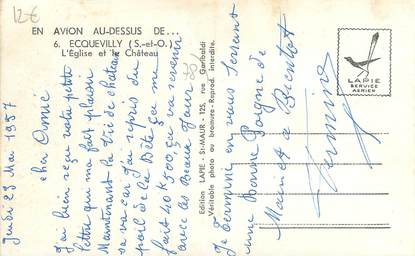 12€
EN AVION AU-DESSUS DE...
6. ECQUEVILLY (S.-et-O.)
L'Église et le Château
78
Jeudi 23 Mai 1957
cher Amie
J'ai bien reçu votre petite
lettre qui ma fait plaisir
Maintenant la vie de chateau
sa va car j'ai repris du
poil de la Bête ça me
fait 40 K 500, ça va revenir
avec les Beaux Jour
Je termine en vous serrant
une Bonne Poigne de
Main et a Bientot
Edition LAPIE - St-MAUR - 125, rue Garibaldi
Véritable photo au bromure - Reprod. interdite.
LAPIE
SERVICE
AÉRIEN